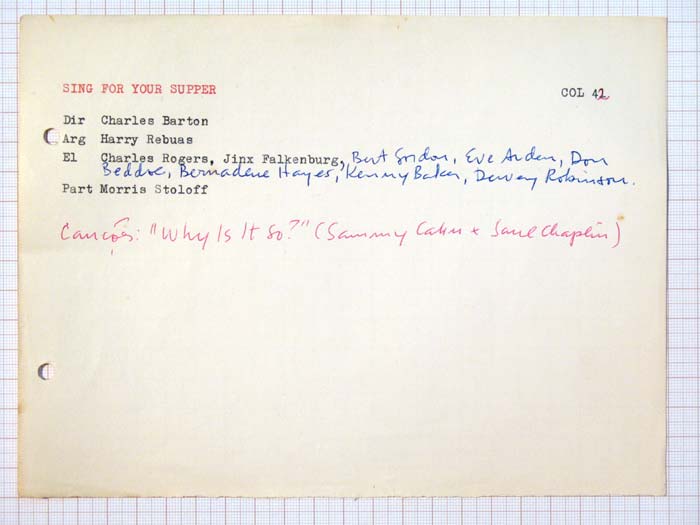 SING FOR YOUR SUPPER COL 42
Dir Charles Barton
Arg Harry Rebuas
El Charles Rogers, Jinx Falkenburg, Bert Gordon, Eve Arden, Don
Beddoe, Bernadene Hayes, Kenny Baker, Dewey Robinson.
Part Morris Stoloff
Canções: "Why Is It So?" (Sammy Cahn + Saul Chaplin)